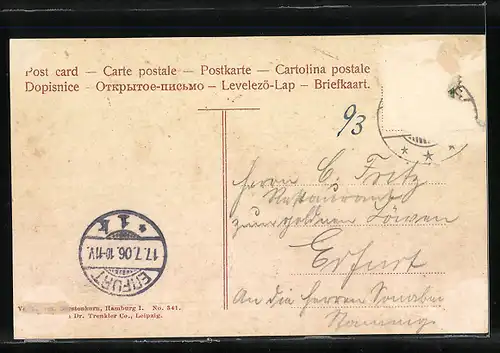 Post card — Carte postale — Postkarte — Cartolina postale
Dopisnice — Открытое-письмо — Levelező-Lap — Briefkaart.
93
Herrn C. Fritz
Restaurant
zum goldnen Löwen
Erfurt
An die Herren
* 1 k
17.7.06. 10-11V.
ERFURT
Hamburg I. No. 541.
Dr. Trenkler Co., Leipzig.